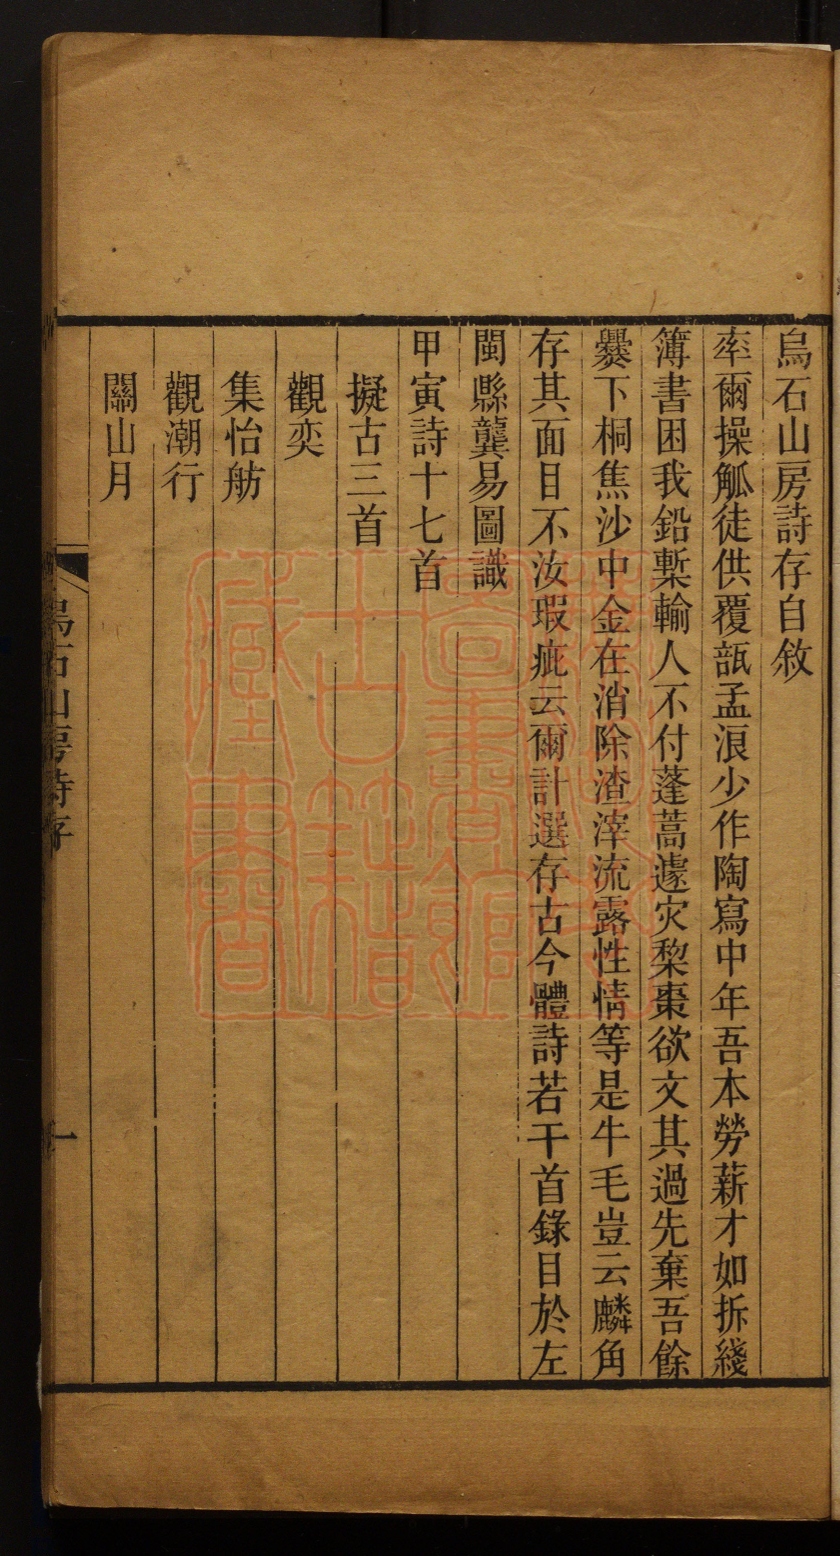 烏石山房詩存自敘
率爾操觚徒供覆瓿孟浪少作陶寫中年吾本勞薪才如拆綫
簿書困我鉛槧輸人不付蓬蒿遽灾棃棗欲文其過先棄吾餘
爨下桐焦沙中金在消除渣滓流露性情等是牛毛豈云麟角
存其面目不汝瑕疵云爾計選存古今體詩若干首錄目於左
閩縣龔易圖識
甲寅詩十七首
擬古三首
觀奕
集怡舫
觀潮行
關山月
烏石山房詩存
一